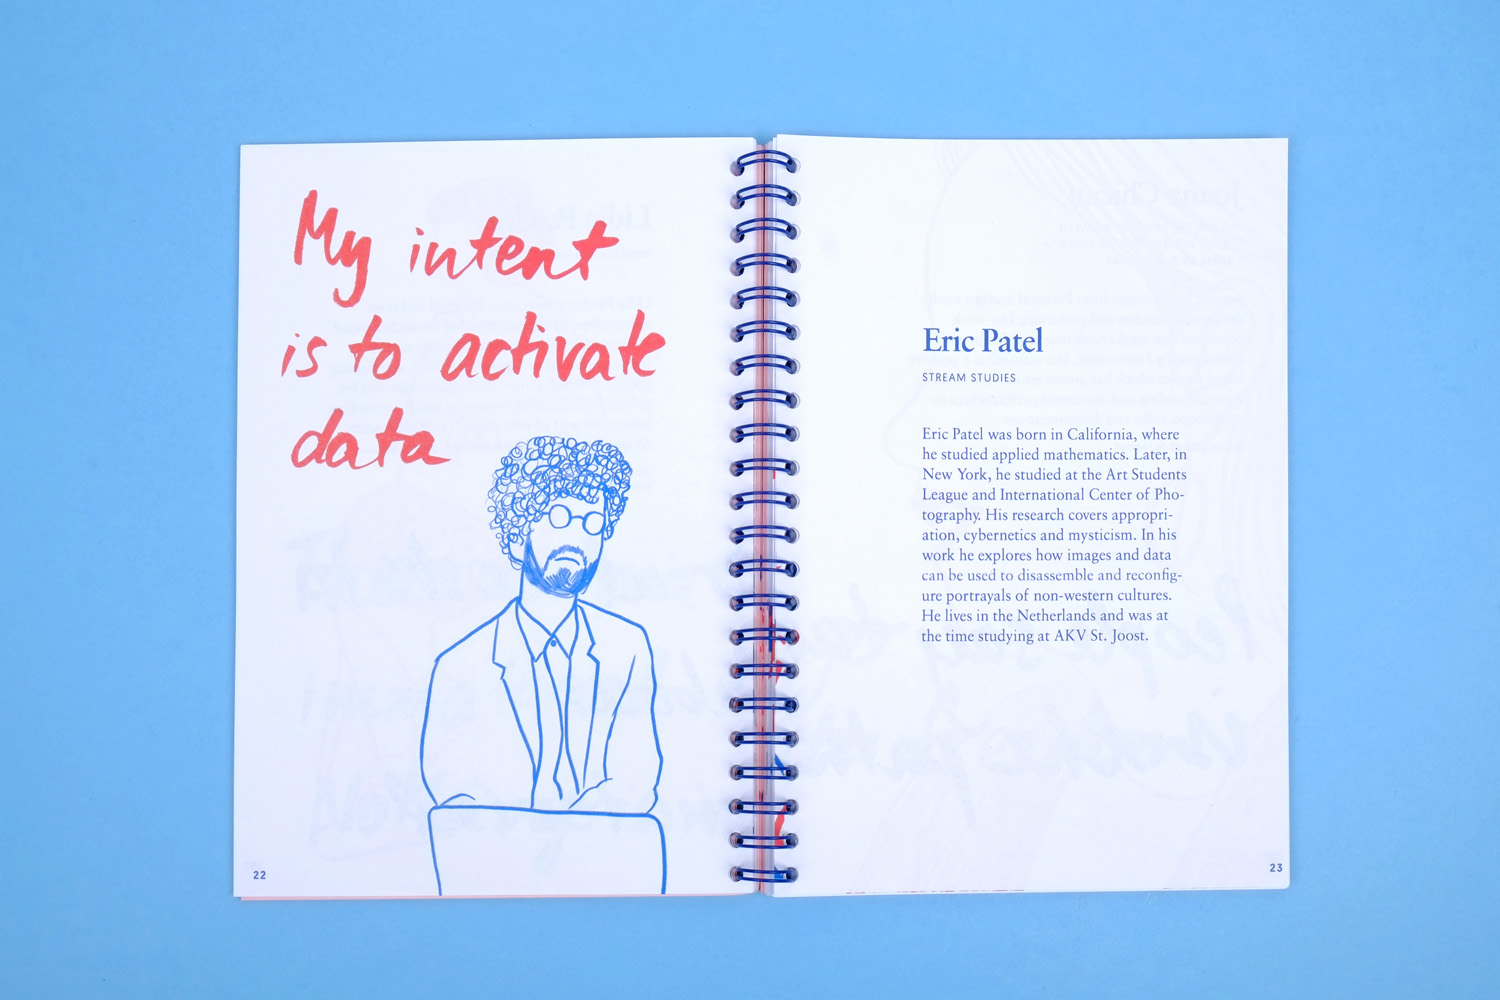 My intent
is to activate
data
22
Eric Patel
STREAM STUDIES
Eric Patel was born in California, where
he studied applied mathematics. Later, in
New York, he studied at the Art Students
League and International Center of Pho-
tography. His research covers appropri-
ation, cybernetics and mysticism. In his
work he explores how images and data
can be used to disassemble and reconfig-
ure portrayals of non-western cultures.
He lives in the Netherlands and was at
the time studying at AKV St. Joost.
23